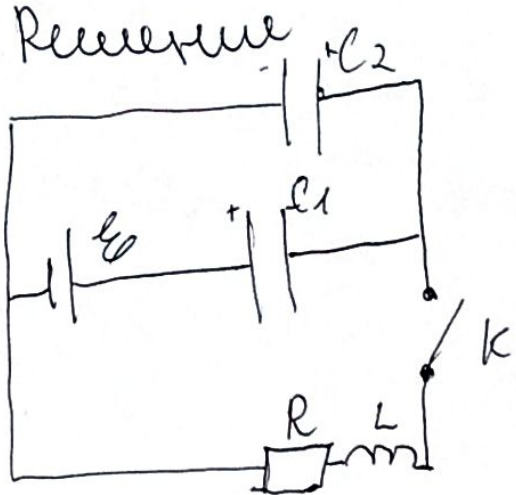 Решение
- + C2
ℰ + C1
K
R L